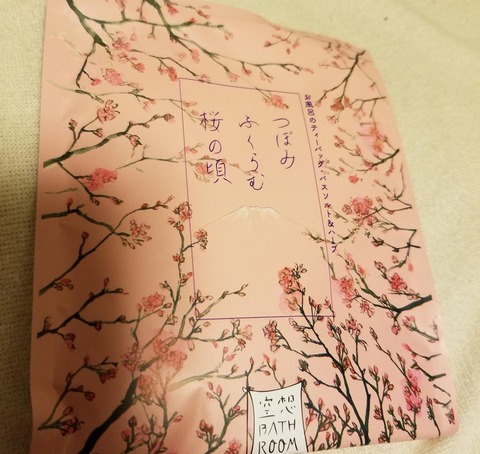 お風呂のティーバッグ・バスソルト&ハーブ
つぼみ
ふくらむ
桜の頃
空想
BATH
ROOM